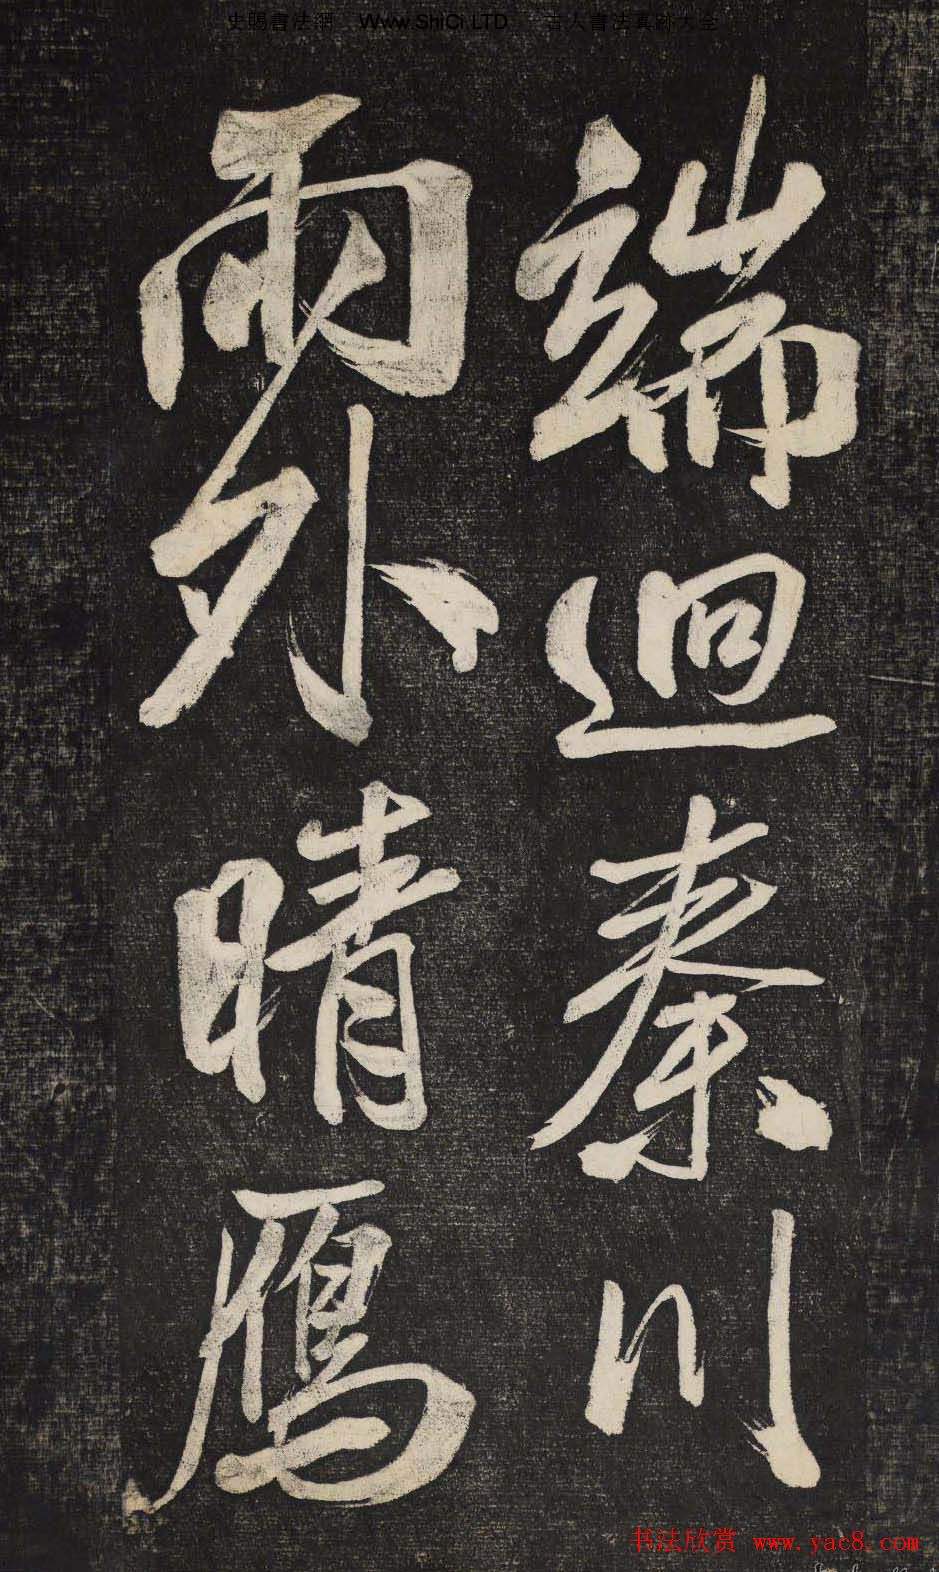 史賜書法網 Www.ShiCi.LTD 古人書法真跡大全
端迴秦川
雨外晴鴈
书法欣赏 www.yac8.com